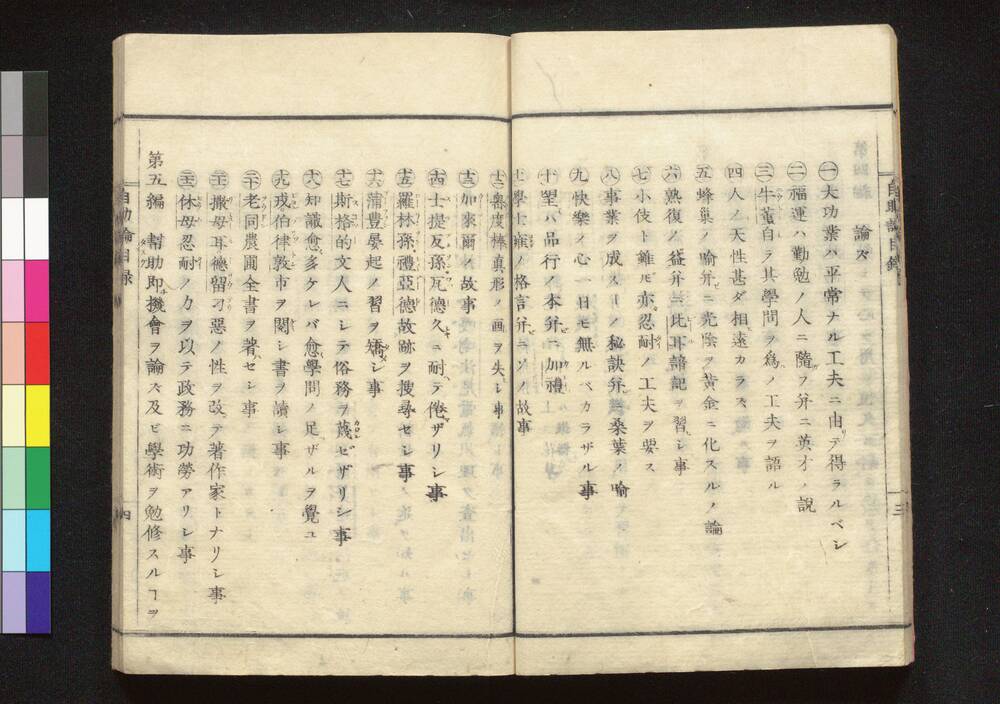 ㊀大功業ハ平常ナル工夫ニ由テ得ラルベシ
㊁福運ハ勤勉ノ人ニ隨フ并ニ英才ノ說
㊂牛董自ラ其學問ヲ為ノ工夫ヲ語ル
㊃人ノ天性甚ダ相遠カラズ
㊄蜂巢ノ喻并ニ光陰ヲ黃金ニ化スルノ論
㊅熟復ノ益并ニ比耳諳記ヲ習シ事
㊆小伎ト雖モ亦忍耐ノ工夫ヲ要ス
㊇事業ヲ成スノ秘訣并桑葉ノ喻
㊈快樂ノ心一日モ無ルベカラザル事
㊉望ハ品行ノ本并ニ加禮
學士雍ノ格言并ニソノ故事
奧度棒真形ノ画ヲ失シ事
加來爾ノ故事
士提反孫瓦德久ニ耐テ倦ザリシ事
羅林孫禮亞德故跡ヲ搜尋セシ事
蒲豐晏起ノ習ヲ矯シ事
斯格的文人ニシテ俗務ヲ蔑ゼザリシ事
知識愈多ケレバ愈學問ノ足ザルヲ覺ユ
戎伯律敦市ヲ関シ書ヲ讀シ事
老同農圃全書ヲ著セシ事
撒母耳德留刁惡ノ性ヲ改テ著作家トナリシ事
休母忍耐ノ力ヲ以テ政務ニ功勞アリシ事
第五編　幇助即機會ヲ論ズ及ビ學術ヲ勉修スルヿヲ
自助論目録
四